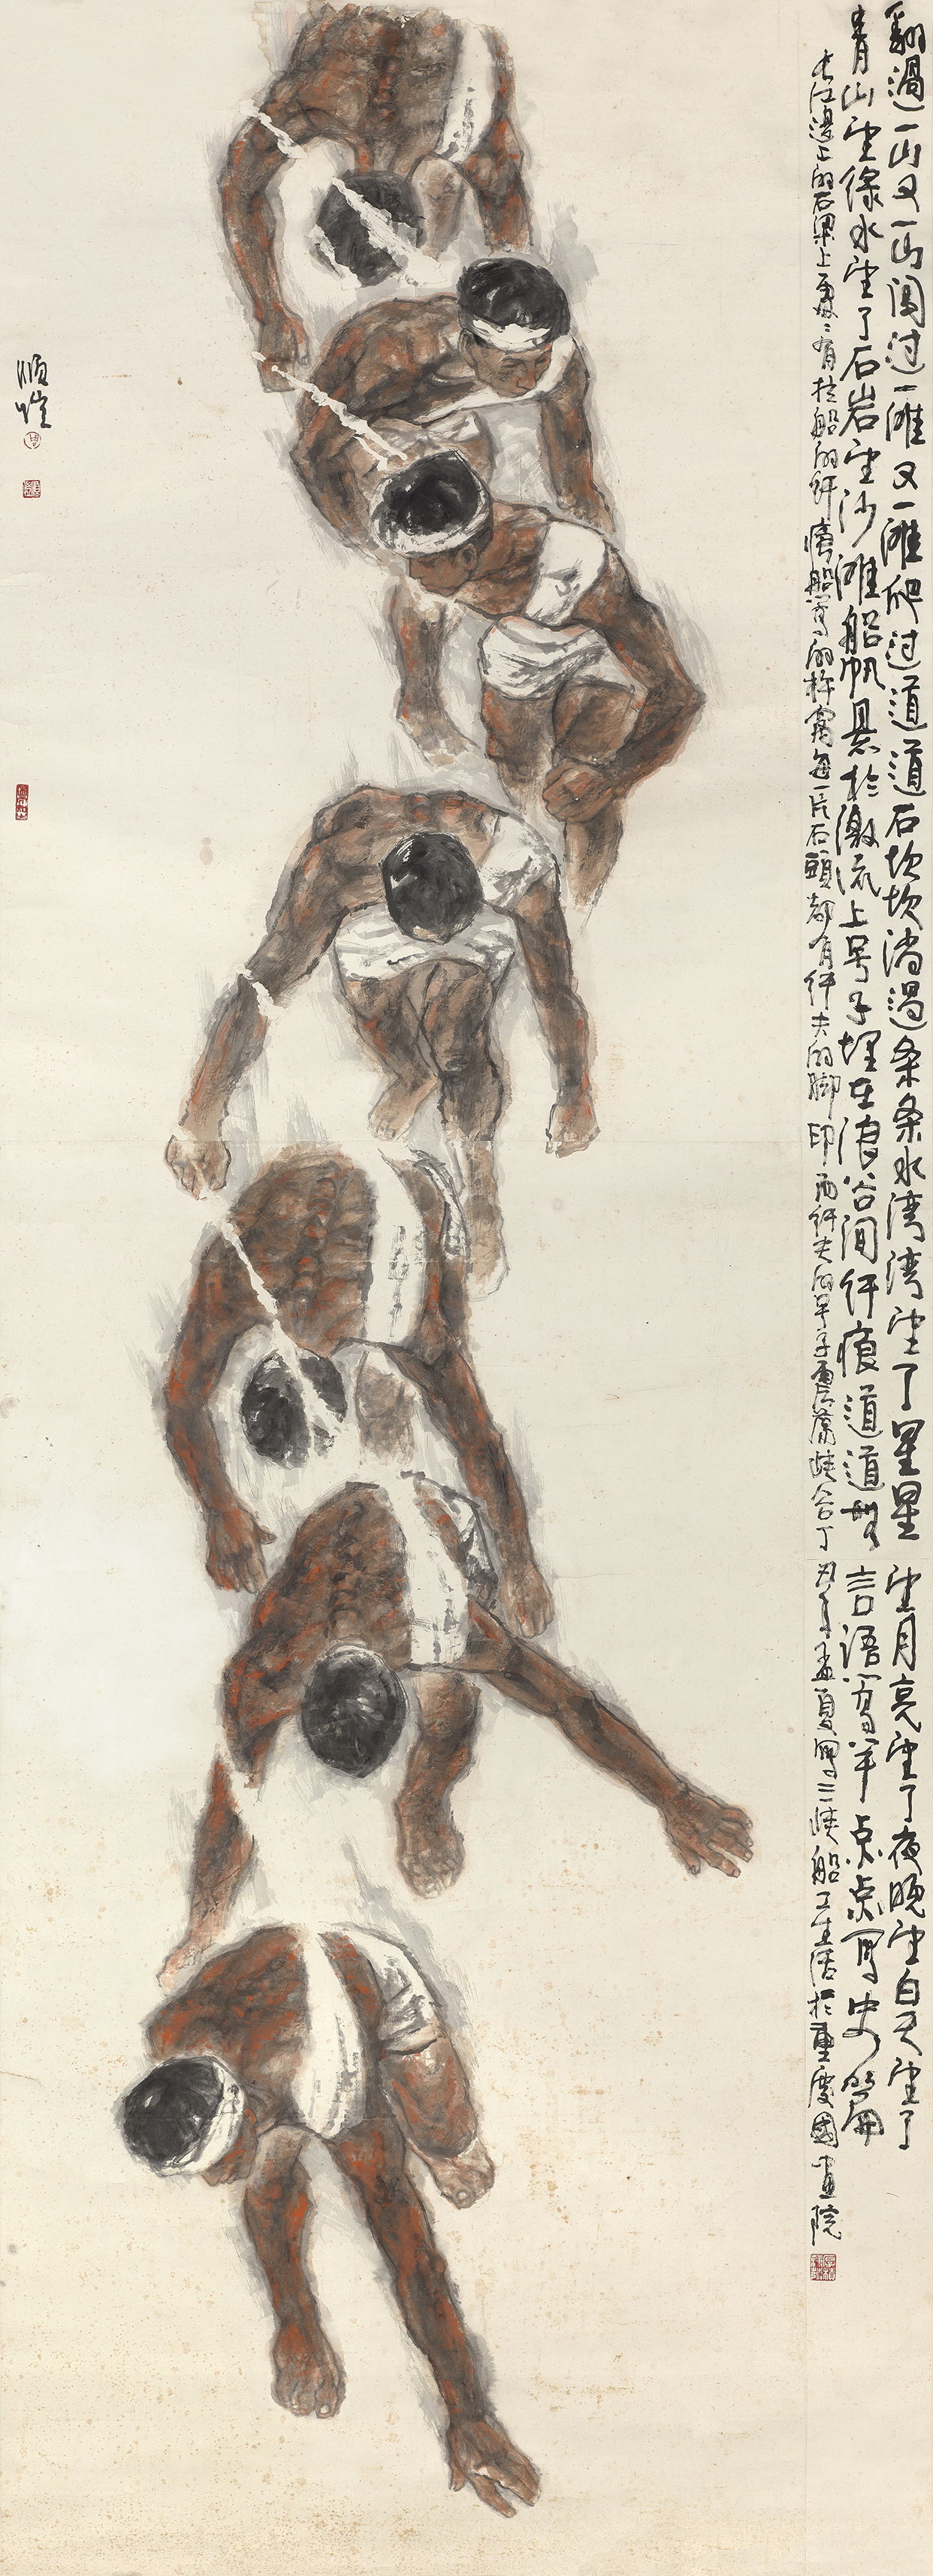 翻過一山又一山闯过一滩又一滩爬过道道石坎坎淌過条条水湾湾望了星星望月亮望了夜晚望白天望了
青山望绿水望了石岩望沙滩船帆悬於激流上号子埋在浪谷间纤痕道道無言语篙竿点点写史篇
长江邊上的石梁上處處有拉船的纤痕船篙的杵窩每一片石頭都有纤夫的脚印而纤夫的号子震荡峡谷丁丑年孟夏寫三峡船工生活於重慶國画院
顺恺